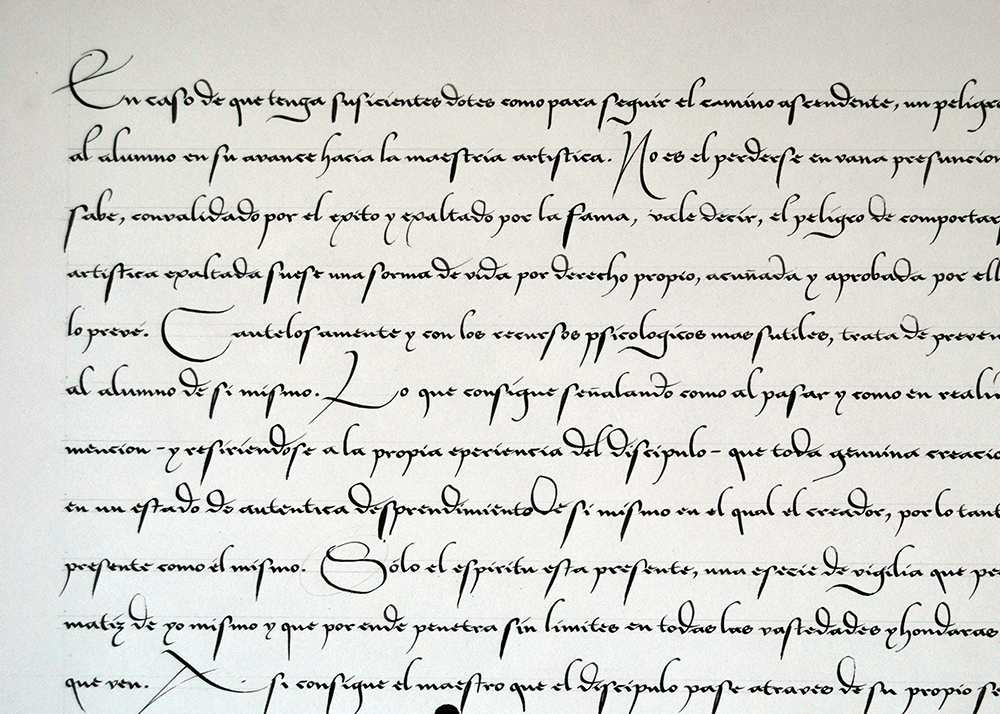 En caso de que tenga suficientes dotes como para seguir el camino ascendente, un peligro
al alumno en su avance hacia la maestria artistica. No es el perderse en vana presuncion
sabe, convalidado por el exito y exaltado por la fama, vale decir, el peligro de comportar
artistica exaltada fuese una forma de vida por derecho propio, acuñada y aprobada por ell
lo prevé. Cautelosamente y con los recursos psicologicos mas sutiles, trata de preven
al alumno de si mismo. Lo que consigue señalando como al pasar y como en
mencion - y refiriendose a la propia eperiencia del discipulo - que toda genuina creacio
en un estado de autentica desprendimiento de si mismo en el qual el creador, por lo tant
presente como el mismo. Sólo el espiritu esta presente, una esecie de vigilia que pe
matiz de yo mismo y que por ende penetra sin limites en todas las vastedades y hondaras
que ven. Asi consigue el maestro que el discipulo pase atraves de su propio se